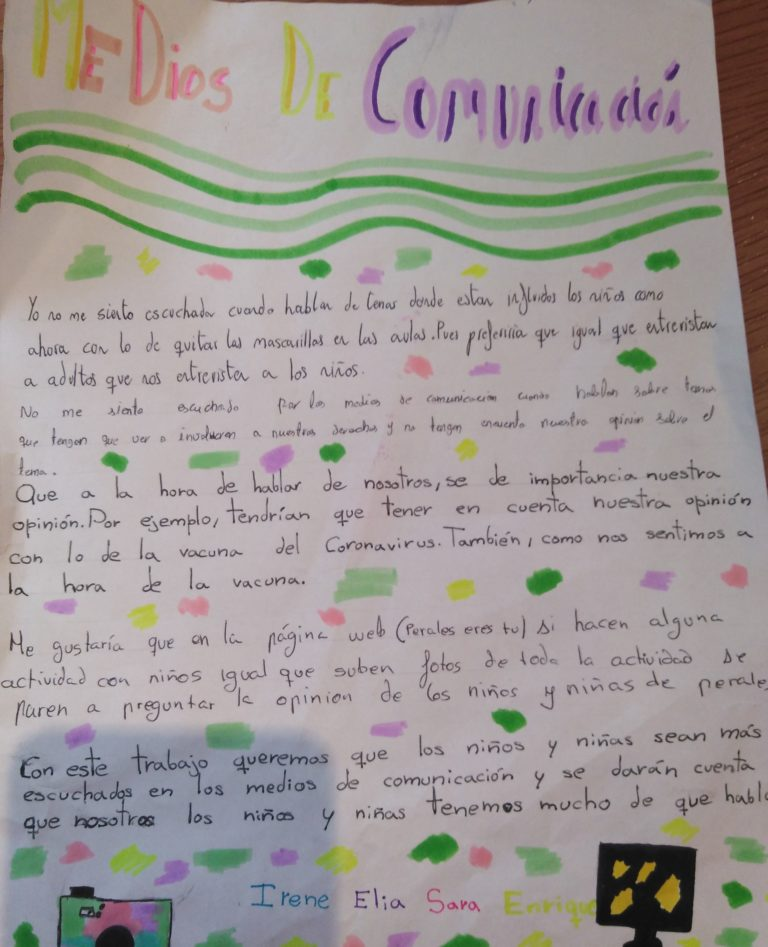 MEDios DE Comunicación
Yo no me siento escuchada cuando hablan de temas donde estan influidos los niños como
ahora con lo de quitar las mascarillas en las aulas. Pues preferiria que igual que entrevistan
a adultos que nos entrevisten a los niños.
No me siento escuchado por los medios de comunicacion cuando hablan sobre temas
que tengan que ver o involucren a nuestros derechos y no tengan encuenta nuestra opinion sobre el
tema.
Que a la hora de hablar de nosotros, se de importancia nuestra
opinión. Por ejemplo, tendrían que tener en cuenta nuestra opinión
con lo de la vacuna del Coronavirus. También, como nos sentimos a
la hora de la vacuna.
Me gustaría que en la página web (Perales eres tu) si hacen alguna
actividad con niños igual que suben fotos de toda la actividad se
paren a preguntar la opinion de los niños y niñas de perales
Con este trabajo queremos que los niños y niñas sean más
escuchados en los medios de comunicación y se darán cuenta
que nosotros los niños y niñas tenemos mucho de que habla
Irene Elia Sara Enrique